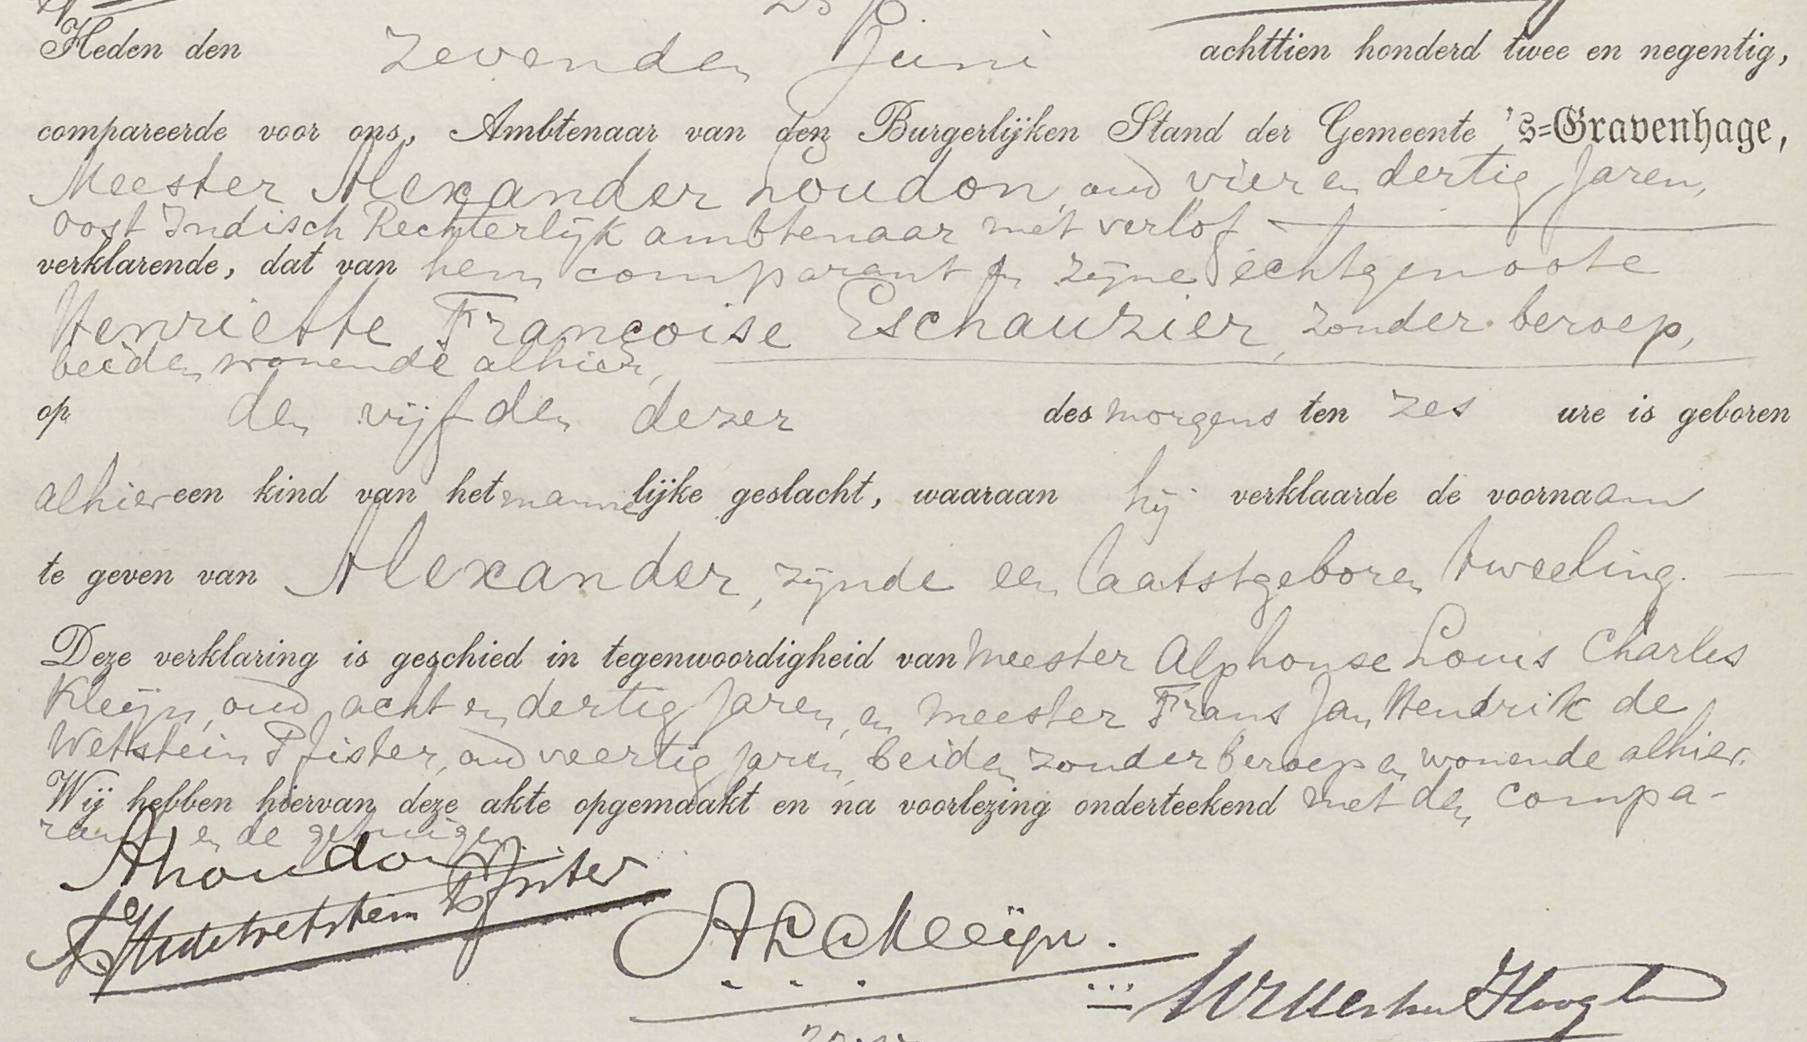 Heden den zevenden Juni achttien honderd twee en negentig,
compareerde voor ons, Ambtenaar van den Burgerlijken Stand der Gemeente 's-Gravenhage,
Meester Alexander Loudon, oud vier en dertig Jaren,
Oost Indisch Rechterlijk ambtenaar met verlof
verklarende, dat van hem comparant en zijne echtgenoote
Henriette Françoise Eschauzier, zonder beroep,
beiden wonende alhier,
op den vijfden dezer des morgens ten zes ure is geboren
alhier een kind van het mannelijke geslacht, waaraan hij verklaarde de voornaam
te geven van Alexander, zijnde een laatstgeboren tweeling.
Deze verklaring is geschied in tegenwoordigheid van Meester Alphonse Louis Charles
Kleijn, oud acht en dertig Jaren, en meester Frans Jan Hendrik de
Wetstein Pfister, oud veertig Jaren, beiden zonder beroep en wonende alhier.
Wij hebben hiervan deze akte opgemaakt en na voorlezing onderteekend met den compa-
rant en de getuigen.
ALoudon
Wetstein Pfister
ALCKleijn.